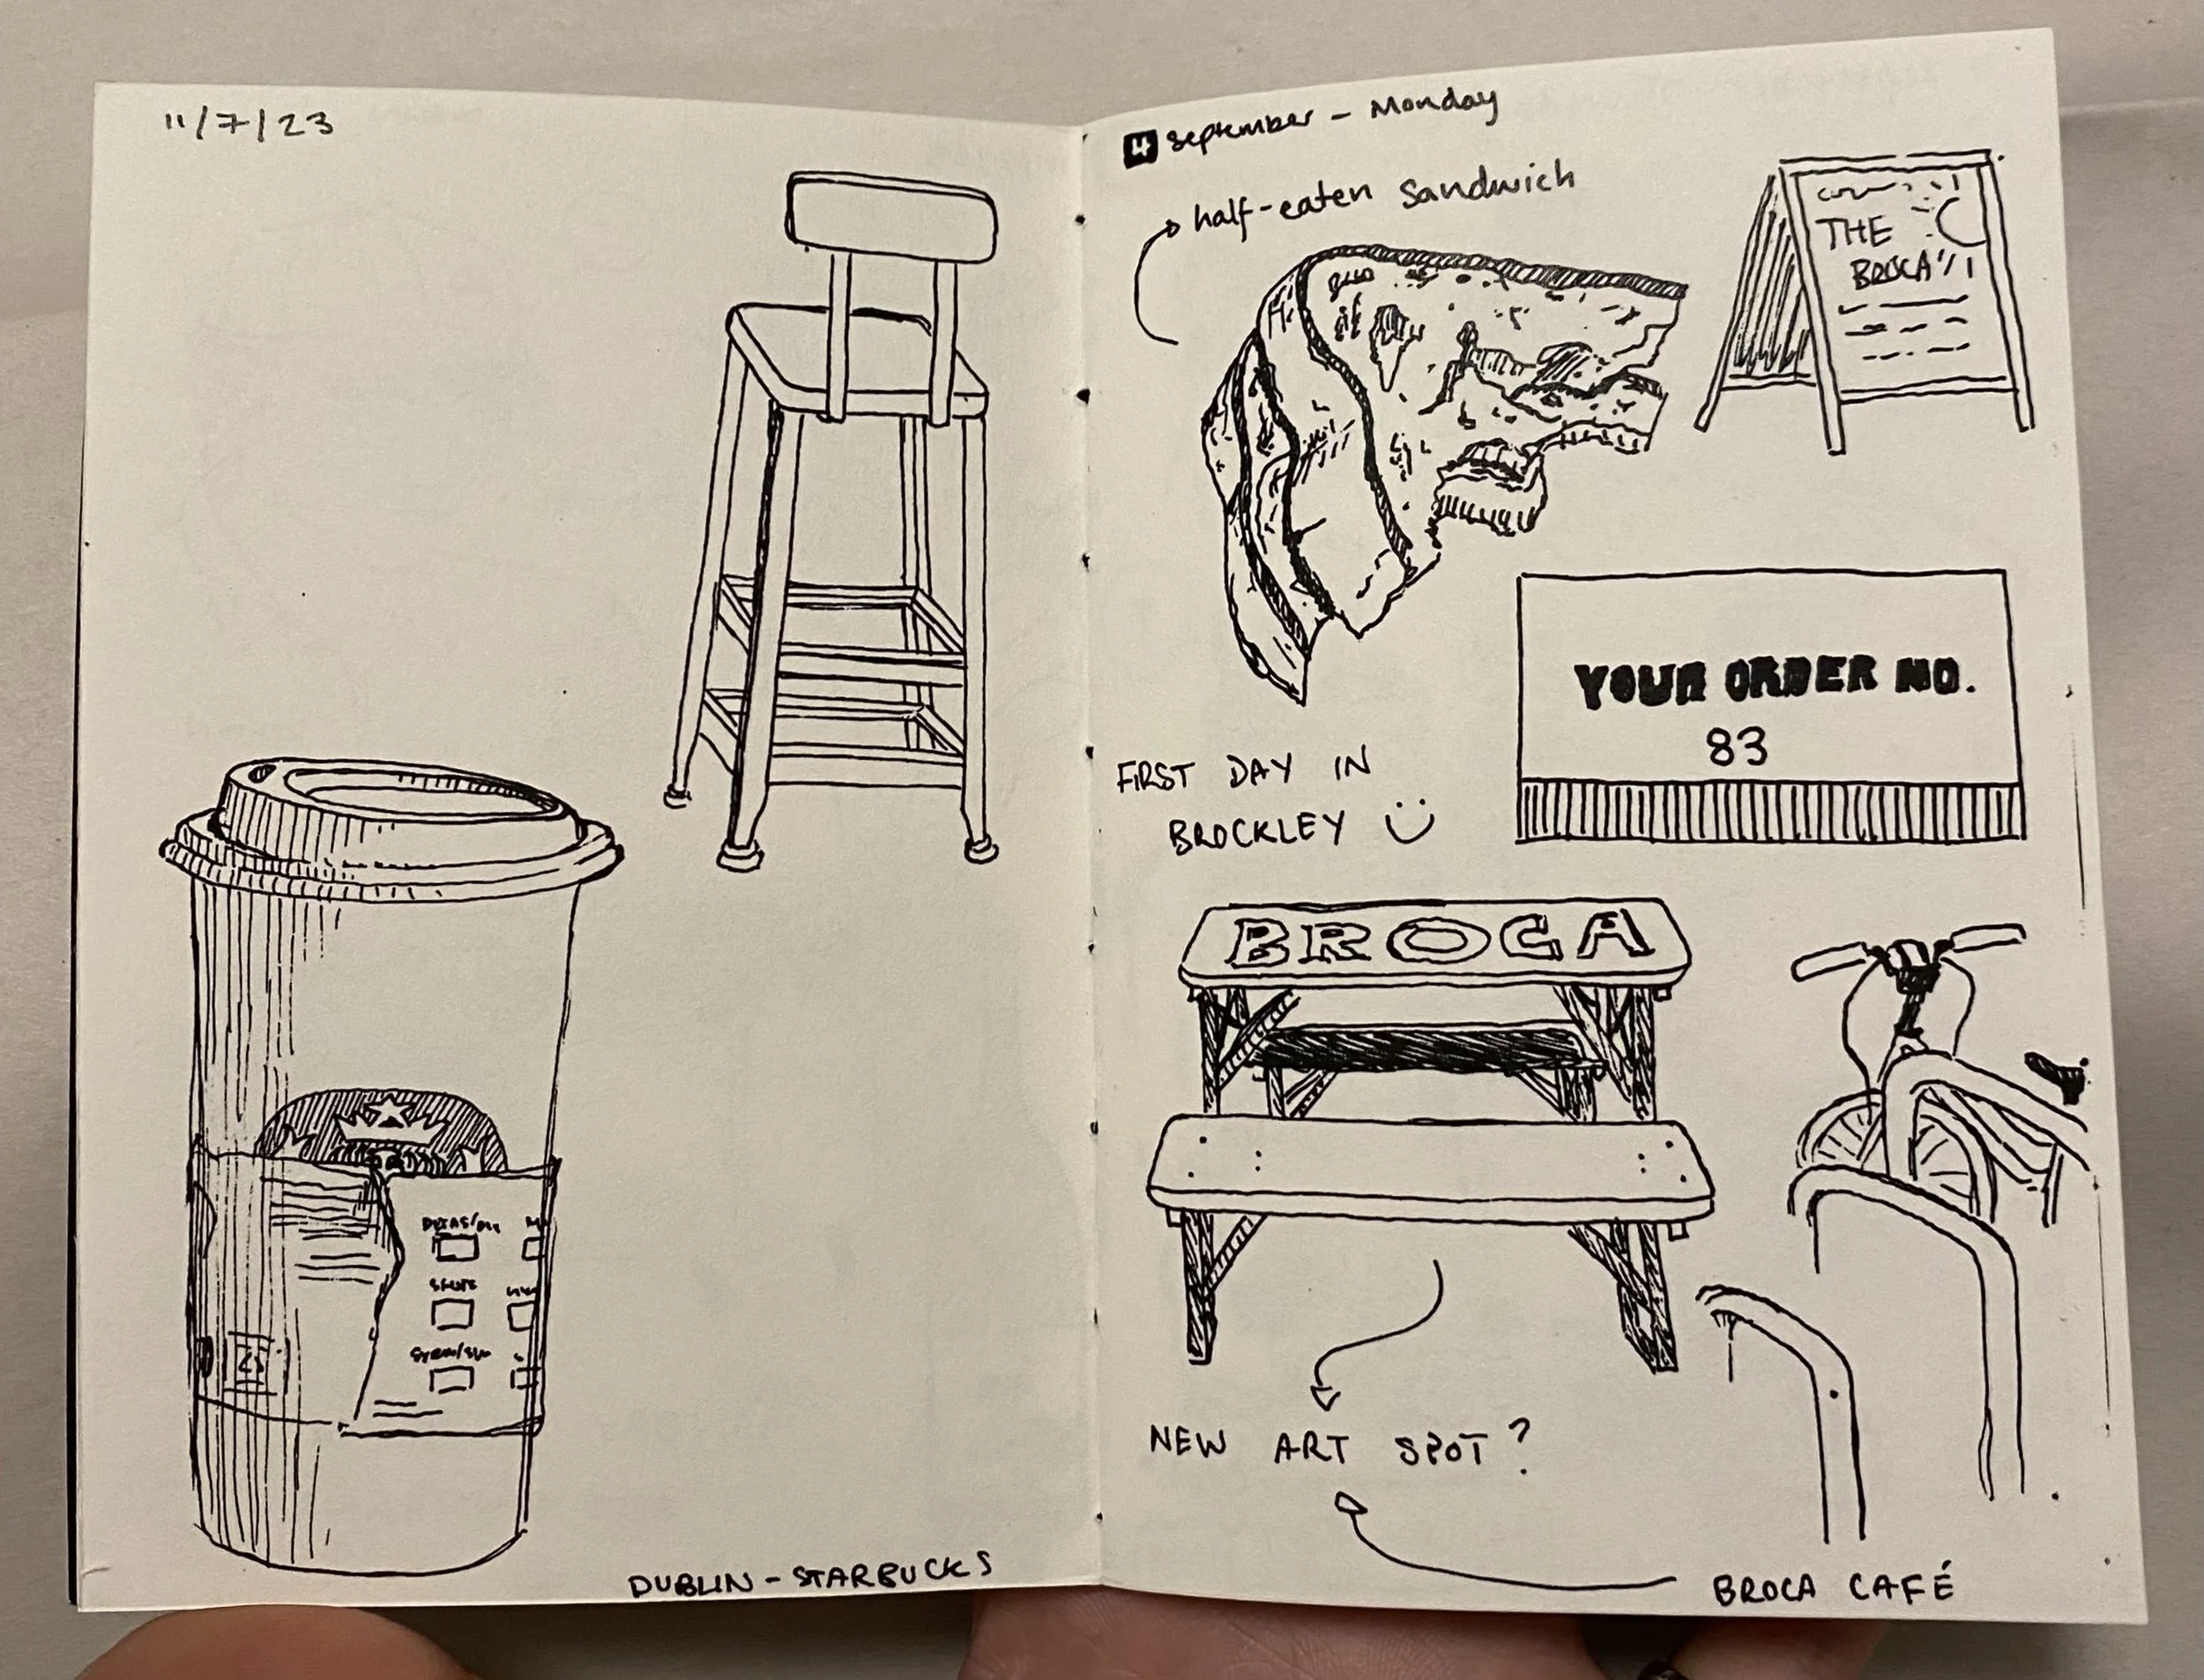 11/7/23
DUBLIN - STARBUCKS
4 September - Monday
half-eaten sandwich
THE
BROCA
YOUR ORDER NO.
83
FIRST DAY IN
BROCKLEY
BROCA
NEW ART SPOT?
BROCA CAFÉ